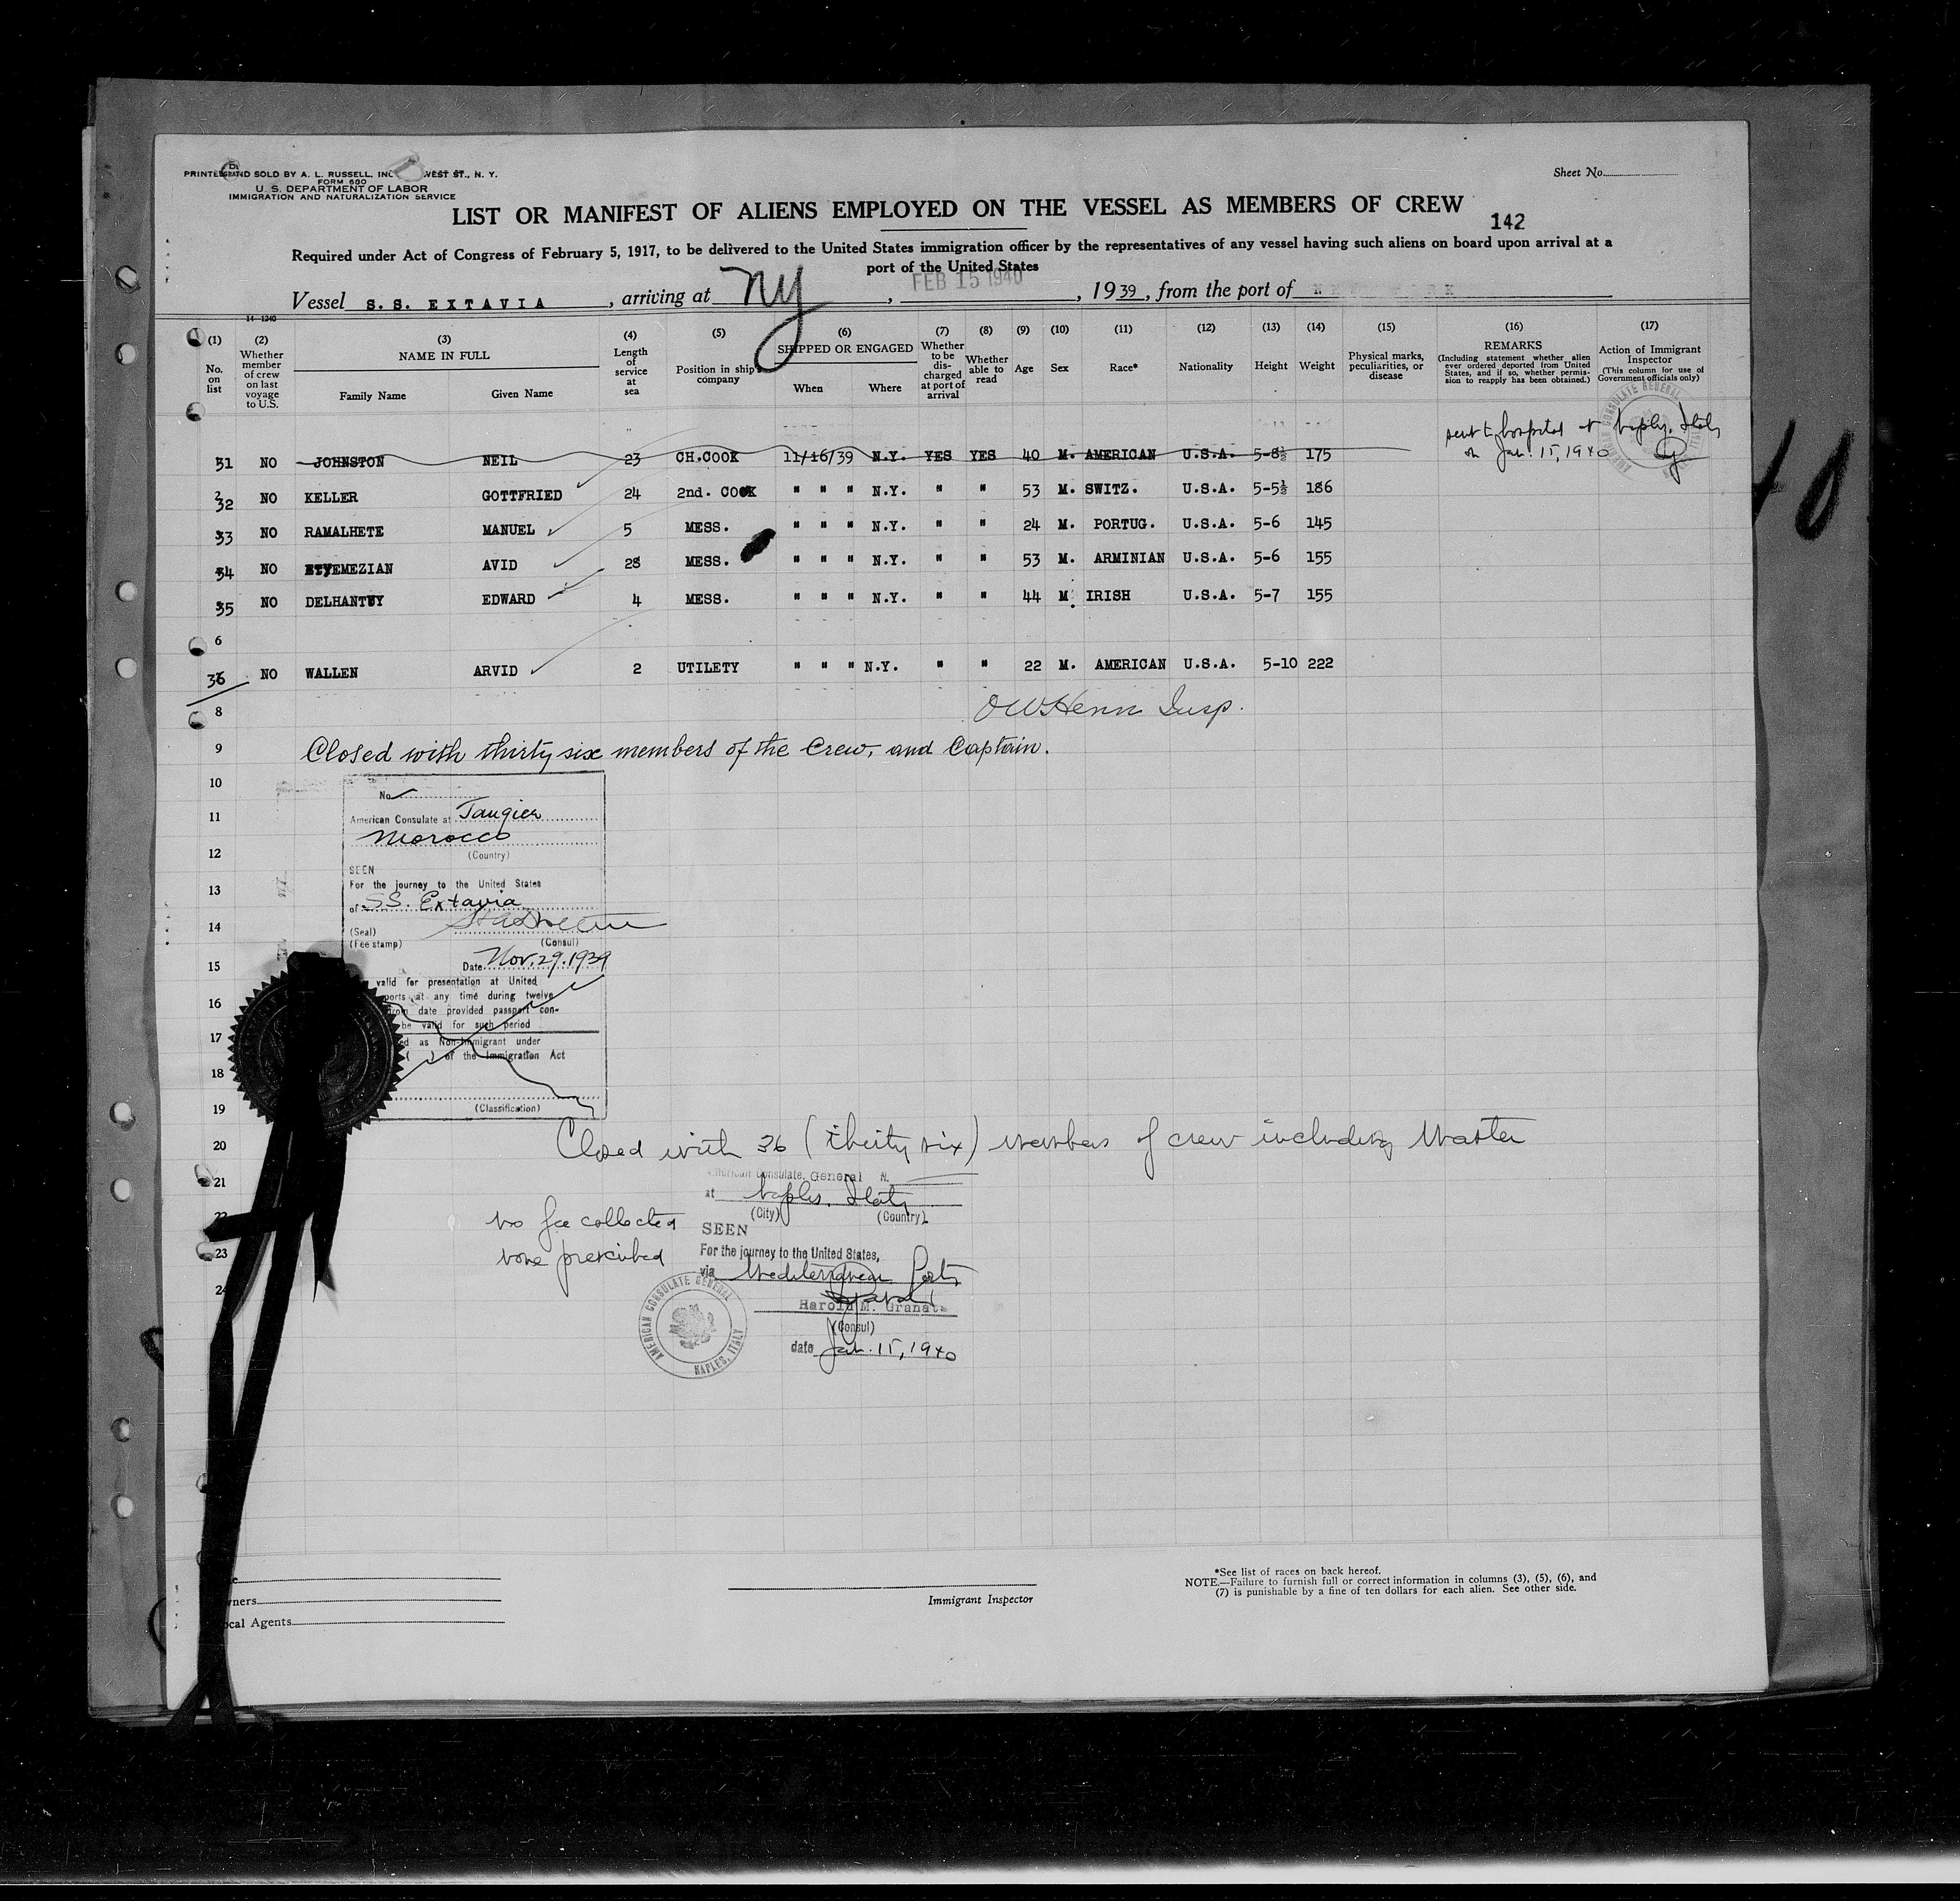 Sheet No.
PRINTED AND SOLD BY A. L. RUSSELL, INC. WEST ST., N. Y.
FORM 680
U. S. DEPARTMENT OF LABOR
IMMIGRATION AND NATURALIZATION SERVICE
LIST OR MANIFEST OF ALIENS EMPLOYED ON THE VESSEL AS MEMBERS OF CREW
142
Required under Act of Congress of February 5, 1917, to be delivered to the United States immigration officer by the representatives of any vessel having such aliens on board upon arrival at a
port of the United States
Vessel S.S. EXTAVIA, arriving at NY, FEB 15 1940, 1939, from the port of NEW YORK
14-1240
(1) (2) (3) (4) (5) (6) (7) (8) (9) (10) (11) (12) (13) (14) (15) (16) (17)
No. on list
Whether member of crew on last voyage to U.S.
NAME IN FULL
Family Name Given Name
Length of service at sea
Position in ship's company
SHIPPED OR ENGAGED
When Where
Whether to be discharged at port of arrival
Whether able to read
Age Sex Race* Nationality Height Weight
Physical marks, peculiarities, or disease
REMARKS
(Including statement whether alien ever ordered deported from United States, and if so, whether permission to reapply has been obtained.)
Action of Immigrant Inspector
(This column for use of Government officials only)
sent to hospital at Naples, Italy
on Jan. 15, 1940
31 NO JOHNSTON NEIL 23 CH.COOK 11/16/39 N.Y. YES YES 40 M. AMERICAN U.S.A. 5-8½ 175
32 NO KELLER GOTTFRIED 24 2nd. COOK " " " N.Y. " " 53 M. SWITZ. U.S.A. 5-5½ 186
33 NO RAMALHETE MANUEL 5 MESS. " " " N.Y. " " 24 M. PORTUG. U.S.A. 5-6 145
34 NO EMEZIAN AVID 28 MESS. " " " N.Y. " " 53 M. ARMINIAN U.S.A. 5-6 155
35 NO DELHANTY EDWARD 4 MESS. " " " N.Y. " " 44 M. IRISH U.S.A. 5-7 155
6
36 NO WALLEN ARVID 2 UTILETY " " " N.Y. " " 22 M. AMERICAN U.S.A. 5-10 222
8
Insp.
9 Closed with thirty six members of the Crew, and Captain.
10
No
11
American Consulate at Tangier
Morocco
12
(Country)
SEEN
13
For the journey to the United States
of SS. Extavia
14
(Seal)
(Fee stamp) (Consul)
15
Date Nov. 29. 1939
valid for presentation at United
16
ports at any time during twelve
from date provided passport con-
be valid for such period
17
ed as Non-Immigrant under
( ) of the Immigration Act
18
19
(Classification)
20
Closed with 36 (thirty six) members of crew including Master
21
American Consulate General N.
at Naples, Italy
(City) (Country)
22
No fee collected
SEEN
23
none prescribed
For the journey to the United States,
via Mediterranean Ports
24
Harold M. Granata
(Consul)
date Jan. 15, 1940
AMERICAN CONSULATE GENERAL
NAPLES, ITALY
*See list of races on back hereof.
NOTE.—Failure to furnish full or correct information in columns (3), (5), (6), and
(7) is punishable by a fine of ten dollars for each alien. See other side.
Immigrant Inspector
wners
ocal Agents